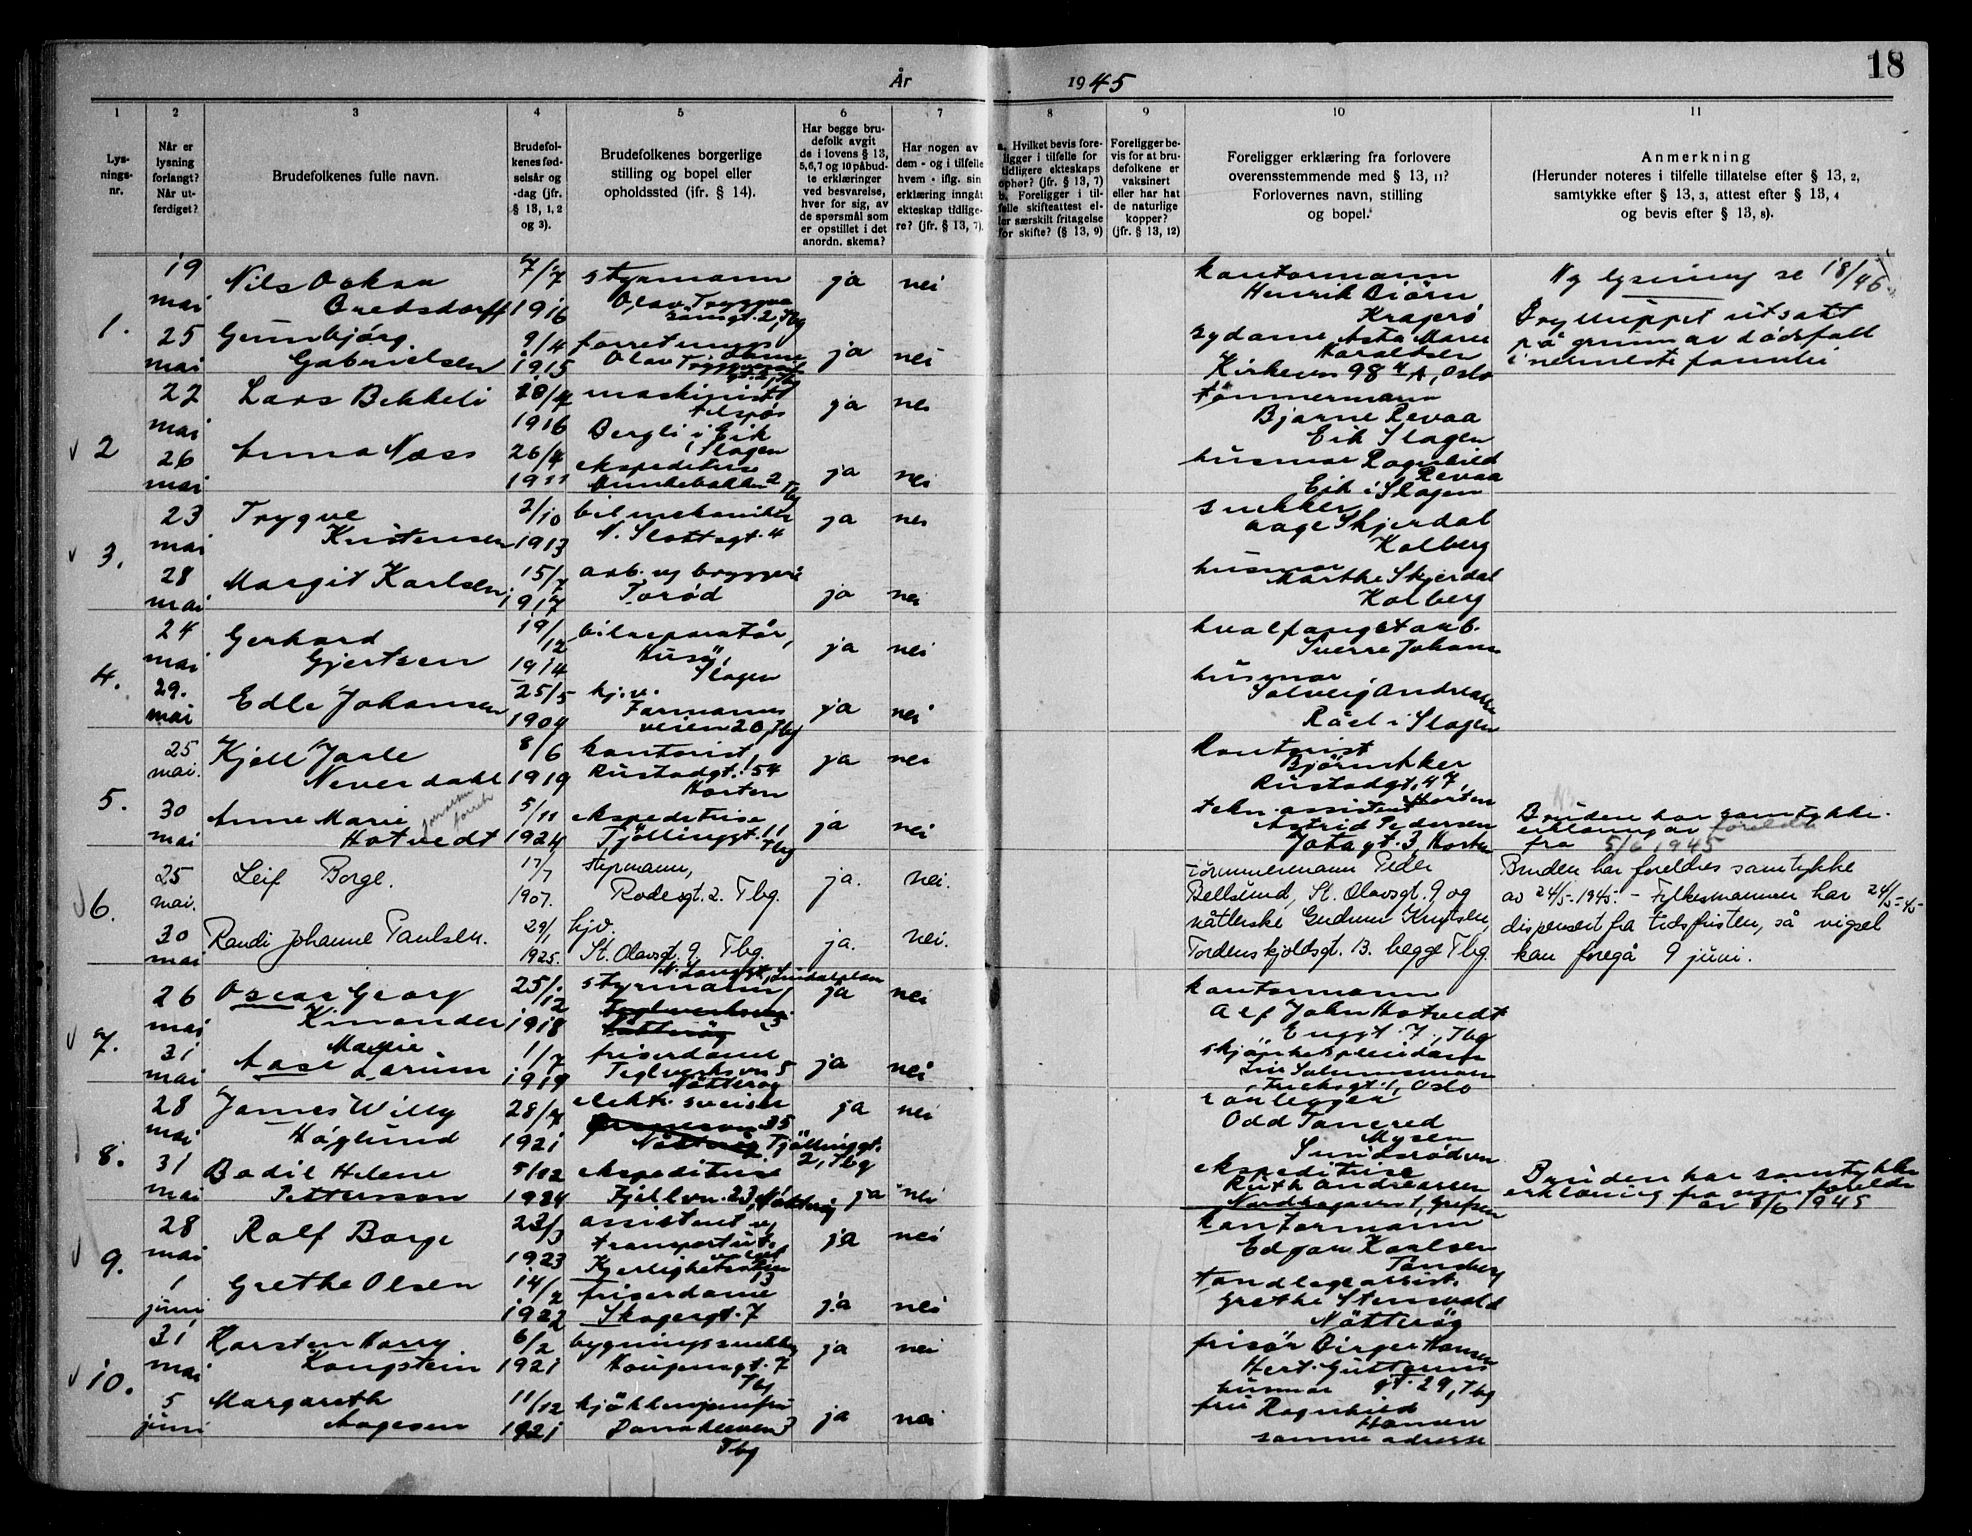 18
År 1945
1
2
3
4
5
6
7
8
9
10
11
Lys-
nings-
nr.
Når er
lysning
forlangt?
Når ut-
ferdiget?
Brudefolkenes fulle navn.
Brudefol-
kenes fød-
selsår og
-dag (jfr.
§ 13, 1, 2
og 3).
Brudefolkenes borgerlige
stilling og bopel eller
opholdssted (ifr. § 14).
Har begge bru-
defolk avgit
de i lovens § 13,
5,6,7 og 10 påbud-
te erklæringer
ved besvarelse,
hver for sig, av
de spørsmål som
er opstillet i det
anordn. skema?
Har nogen av
dem - og i tilfelle
hvem - iflg. sin
erklæring inngåt
ekteskap tidlige-
re? (jfr. § 13, 7).
a. Hvilket bevis fore-
ligger i tilfelle for
tidligere ekteskaps
ophør? (jfr. § 13, 7)
b. Foreligger i til-
felle skifteattest el-
ler særskilt fritagelse
for skifte? (§ 13, 9)
Foreligger be-
vis for at bru-
defolkene er
vaksinert
eller har hat
de naturlige
kopper?
(jfr. § 13, 12)
Foreligger erklæring fra forlovere
overensstemmende med § 13, 11?
Forlovernes navn, stilling
og bopel.
Anmerkning
(Herunder noteres i tilfelle tillatelse efter § 13, 2,
samtykke efter § 13, 3, attest efter § 13, 4
og bevis efter § 13, 8).
1.
19
mai
25
mai
Nils Oskar
Bredsdorff
7/7
1916
styrmann
Olav Tryggva
sønsgt. 2, Tbg
ja
nei
Gunnbjørg
Gabrielsen
9/4
1915
forretnings
dame
Olav
ja
nei
kontormann
Henrik Bjørn
Kragerø
sydame Asta Marie
Haraldsen
Kirkevn 98 A, Oslo
Ny lysning se 18/45
Bryllupet utsatt
på grunn av dødsfall
i nermeste familie
2
22
mai
26
mai
Lars Bekkeli
28/7
1916
maskinist
Bergli i Eik
i Slagen
ja
nei
Anna Næss
26/4
1911
ekspeditrise
Munkebakken 2
Tbg
ja
nei
tömmermann
Bjarne Revaa
Eik Slagen
husmor Ragnhild
Revaa
Eik i Slagen
3.
23
mai
28
mai
Trygve
Kristensen
2/10
1913
bilmekaniker
N. Slottsgt. 4
ja
nei
Margit Karlsen
15/7
1917
arb. v bryggeri
Torød
ja
nei
snekker
Aage Skjerdal
Kolberg
husmor
Marthe Skjerdal
Kolberg
4.
24
mai
29.
mai
Gerhard
Gjertsen
19/12
1914
bilreparatør,
Husøy,
Slagen
ja
nei
Edle Johansen
25/5
1904
hj.v.
Farmanns
veien 20, Tbg
ja
nei
hvalfangstarb.
Sverre Johans
husmor
Solveig Andreassen
Råel i Slagen
5.
25
mai.
30
mai
Kjell Jarle
Neverdahl
8/6
1919
kontorist
Rustadgt. 54
Horten
ja
nei
Anne Marie
Hotvedt
5/11
1924
ekspeditrise
Tjøllinggt. 11
Tbg
ja
nei
Kontorist
Bjørn Aker
Rustadgt. 47,
Horten
tekn. assistent
Astrid Pedersen
gt. 3, Horten
Bruden har samtykke-
erklæring av foreldre
fra 5/6 1945
6.
25
mai.
30
mai
Leif Borge.
17/7
1907.
styrmann,
Rodesgt. 2. Tbg.
ja.
nei.
Randi Johanne Paulsen.
29/1
1925.
hjv.
St. Olavsgt. 9. Tbg.
ja.
nei.
Tömmermann Peder
Bellsund, St. Olavsgt. 9 og
Gudrun Knutsen,
Tordenskjoldsgt. B. begge Tbg.
Bruden har foreldres samtykke
av 24/5-1945. - Fylkesmannen har 24/5-45
dispensert fra tidsfristen, så vigsel
kan foregå 9 juni.
7.
26
mai
31
mai
Oscar Georg
Kinander
25/12
1918
styrmann
ja
nei
Marie
Aase Larum
1/7
1919
friserdame
Teglverksvn 5
Nötterøy
ja
nei
kontormann
Alf John Hotvedt
Enggt. 7, Tbg
skjønhetspleidame
Oslo
8.
28
mai
31
mai
James Willy
Höglund
28/7
1921
elektr. sveiser
Nötterøy Tjöllinggt.
2, Tbg
ja
nei
Bodil Helene
Pettersson
5/12
1924
ekspeditrise
Fjellvn. 23, Nötterøy
ja
nei
rørlegger
Odd Tancred
Mysen
Smidsrødvn
ekspeditrise
Ruth Andreassen
Grefsen
Bruden har samtykke
erklæring fra sine foreldre
av 8/6 1945
9.
28
mai
1
juni
Rolf Borge
23/3
1923
assistent v
Kjerlighetsstien
13
ja
nei
Grethe Olsen
14/2
1922
friserdame
Skogergt. 7
ja
nei
Kontormann
Edgar Karlsen
Tönsberg
tandlegeassist.
Grethe Stensvold
Nötterøy
10.
31
mai
5
juni
Karsten Harry
Kongstein
6/2
1921
bygningssnekker
gt. 7
Tbg
ja
nei
Margareth
Aagesen
11/12
1921
kjökkenjomfru
3
Tbg
ja
nei
frisør Birger Hansen
Hert. Guttorms
gt. 29, Tbg
husmor
fru Ragnhild
Hansen
samme adresse